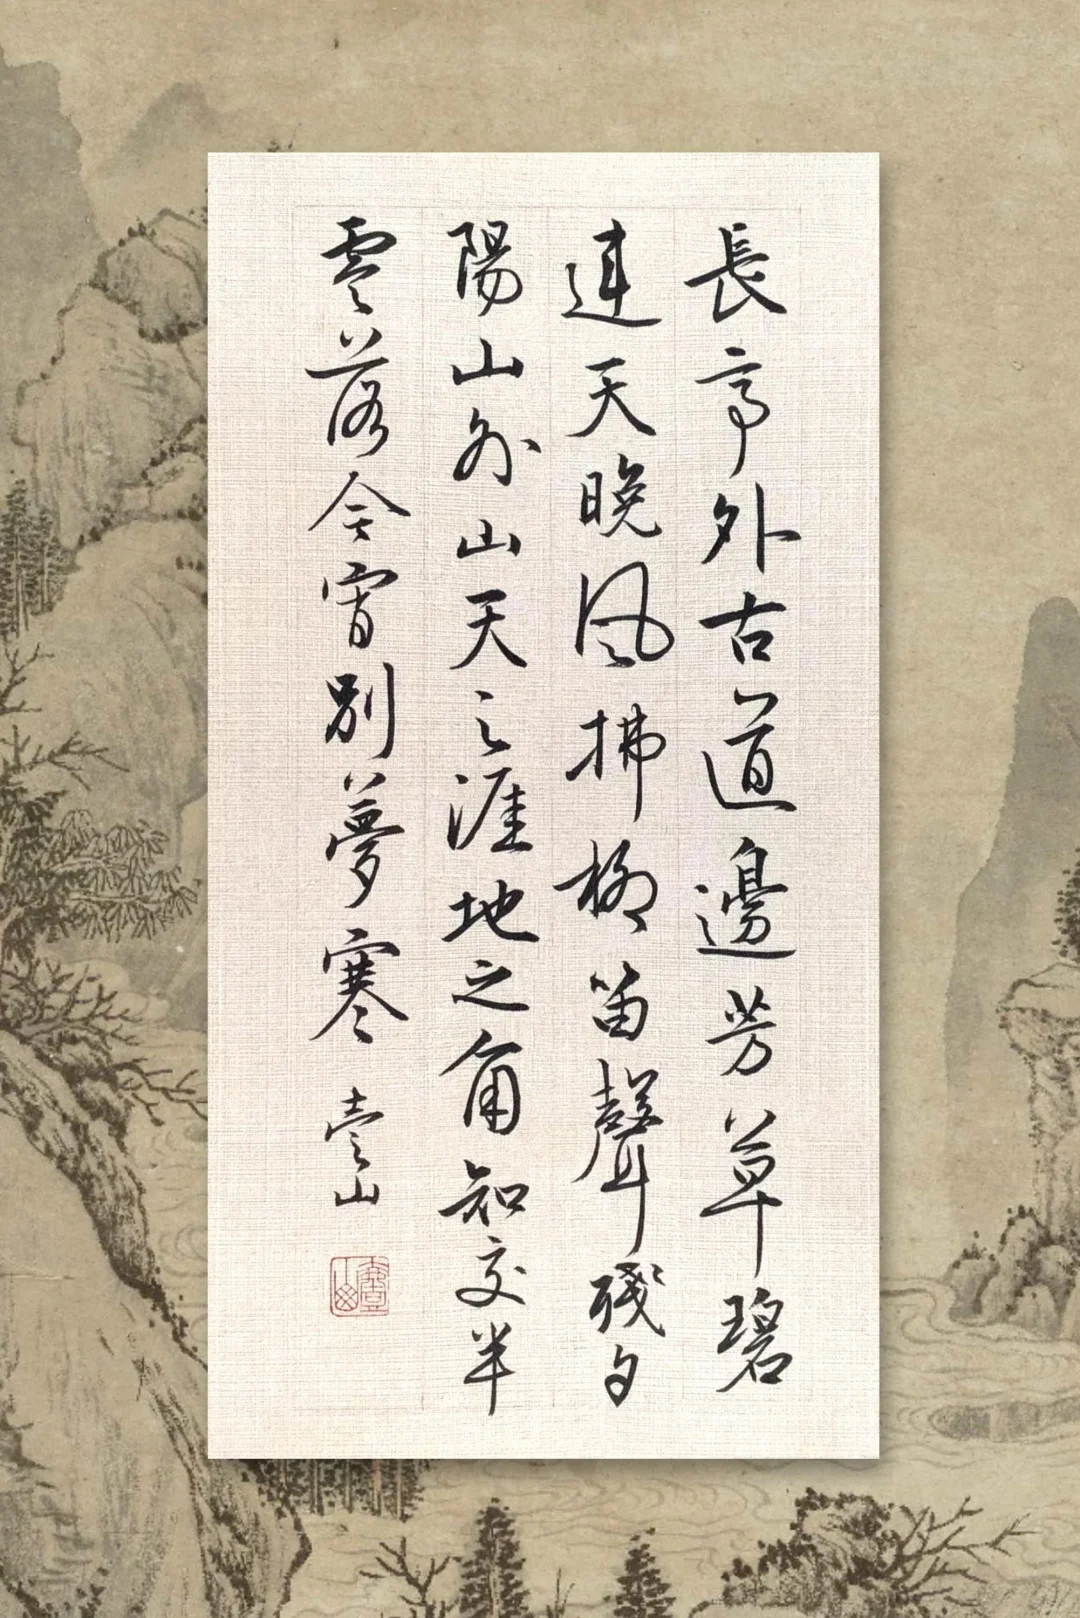 長亭外古道邊芳草碧
連天晚風拂柳笛聲殘夕
陽山外山天之涯地之角知交半
零落今宵別夢寒 壹山